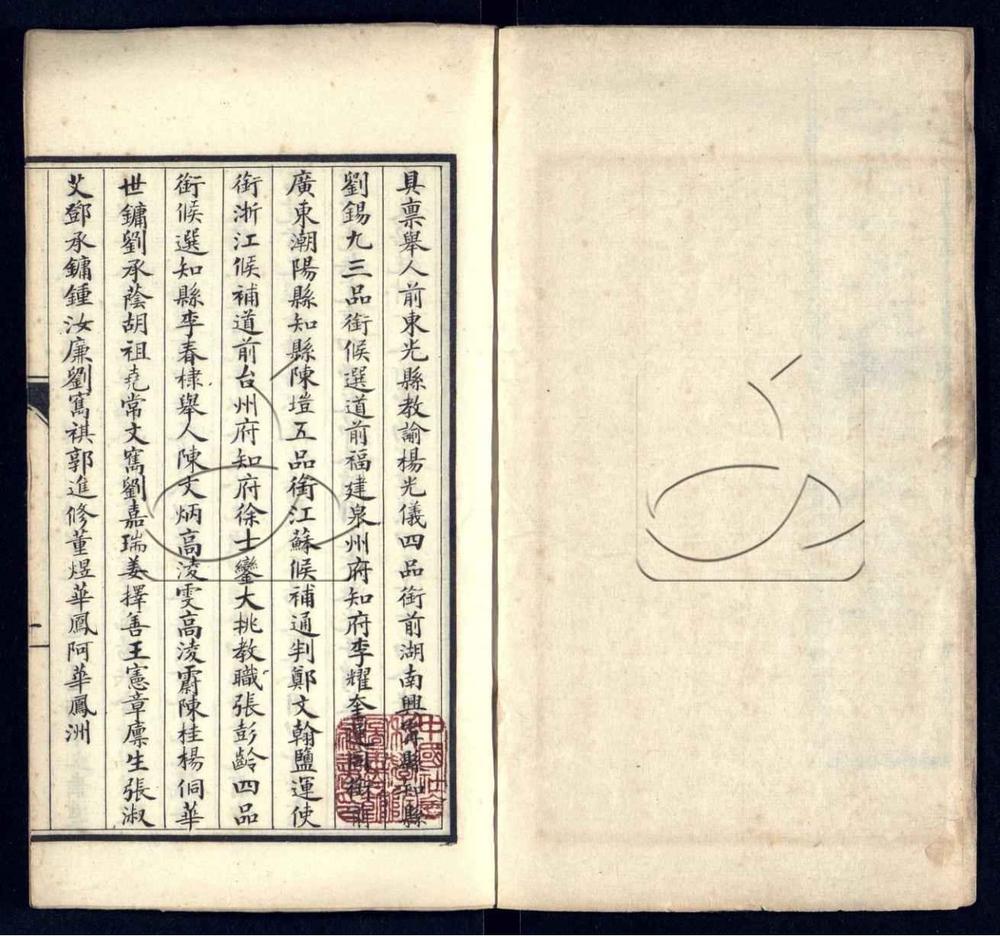 具稟舉人前東光縣教諭楊光儀四品銜前湖南興甯縣知縣
劉錫九三品銜候選道前福建泉州府知府李耀奎運同銜前
廣東潮陽縣知縣陳塏五品銜江蘇候補通判鄭文翰鹽運使
銜浙江候補道前台州府知府徐士鑾大挑教職張彭齡四品
銜候選知縣李春棣舉人陳文炳高淩雯高淩霨陳桂楊侗華
世鏞劉承蔭胡祖堯常文寯劉嘉瑞姜擇善王憲章廩生張淑
艾鄧承鏞鍾汝廉劉寯祺郭進修董煜華鳳阿華鳳洲